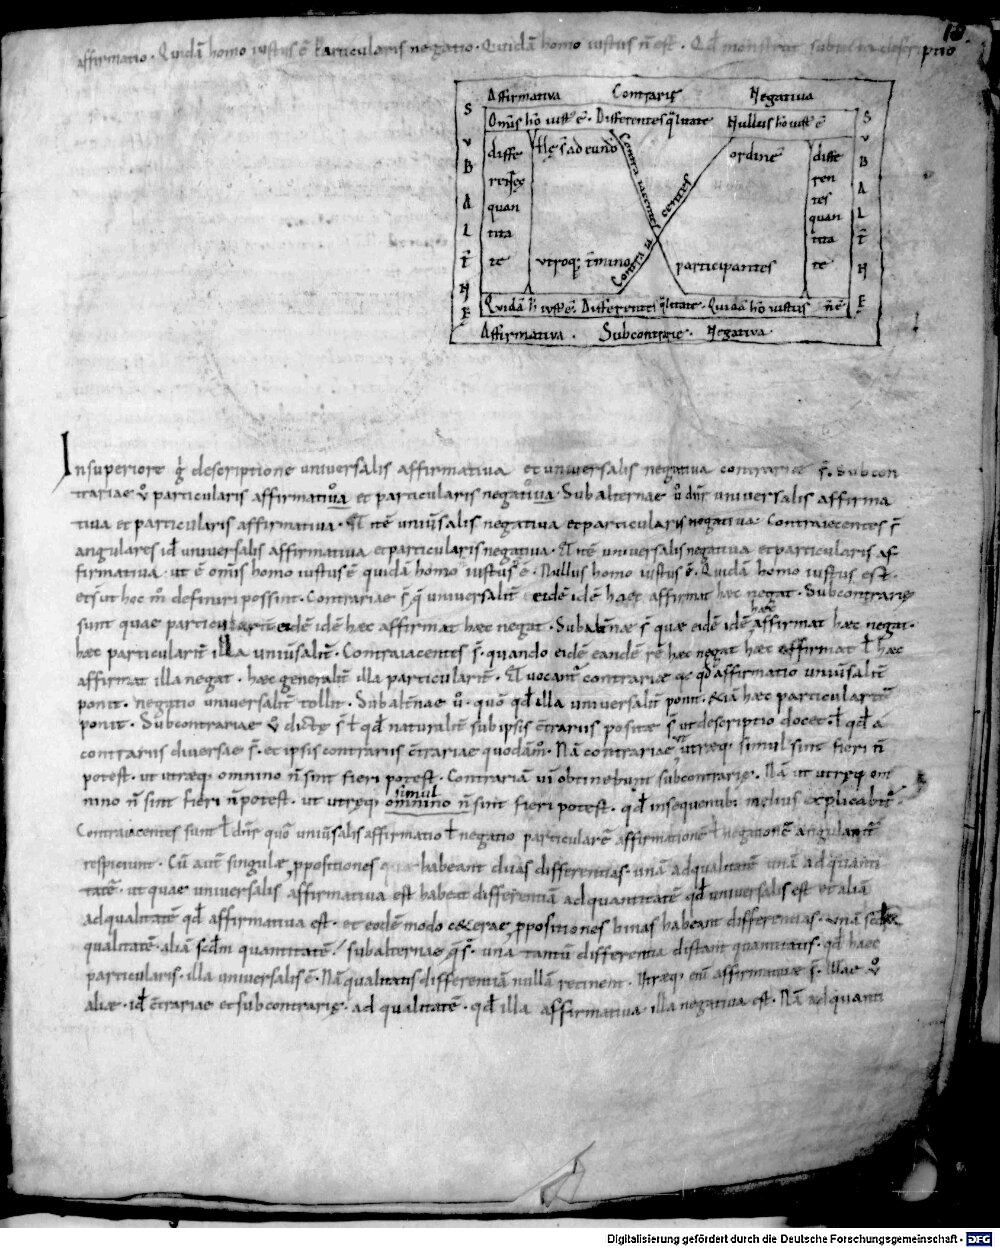 affirmatio · Quidā homo iustus ē particularis negatio · Quidā homo iustus n̄ est · Qd̄ monstrat subiecta descriptio
Affirmativa Contrarię Negativa
Om̄is hō iust' ē · Differentes q̄litate Nullus hō iust' ē
SVBALT̄NE
diffe
rentes
quan
tita
te
tłę s̄ ad eund̄
ordinē
Contra iacentes
Contra iacentes
utroq; t̄mino
participantes
diffe
ren
tes
quan
tita
te
SVBALT̄NE
Quidā h̄ iust' ē · Differentes q̄litate · Quidā hō iustus n̄ē
Affirmativa · Subcontrarie · Negativa
In superiore g̊ descriptione universalis affirmativa et universalis negativa contrariae s̄ · Subcon
trariae v̊ particularis affirmativa et particularis negativa · Subalternae v̊ dn̄r universalis affirma
tiva et particularis affirmativa · Itē univ̄salis negativa et particularis negativa · Contraiecentes s̄
angulares id universalis affirmativa et particularis negativa · Itē universalis negativa et particularis af
firmativa · ut ē om̄is homo iustus ē quidā homo iustus ē · Nullus homo iustus ē · Quidā homo iustus est ·
et s̄ ut hoc m̊ definiri possint · Contrariae s̄ q̄ universalit̄ eidē idē haec affirmat haec negat · Subcontrarię
sunt quae particularit̄ eidē idē haec affirmat haec negat · Subalt̄nae s̄ quae eidē idē haec affirmat haec negat ·
haec particularit̄ illa univ̄salit̄ · Contraiacentes s̄ · quando eidē eandē rē haec negat haec affirmat ł haec
affirmat illa negat · haec generalit̄ illa particularit̄ · Et vocant' contrariae qd̄ affirmatio univ̄salit̄
ponit · negatio universalit̄ tollit · Subalt̄nae v̊ · quō qd̄ illa universalit̄ ponit · etiā haec particularit̄
ponit · Subcontrariae v̊ dictę s̄ ł qd̄ naturalit̄ sub ipsis c̄trariis positae s̄ ut descriptio docet · ł qd̄ a
contrariis diversae s̄ · et ipsis contrariis c̄trariae quodām̊ · Nā contrariae ut utraeq; simul sint fieri n̄
potest · ut utraeq; omnino n̄ sint fieri potest · Contrariā vim obtinebunt subcontrarię · Nā ut utręq; om
nino n̄ sint fieri n̄ potest · ut utraeq; simul omnino n̄ sint fieri potest · qd̄ in sequentib; melius explicabit' ·
Contraiacentes sunt ł dn̄r quō univ̄salis affirmatio ł negatio particularē affirmationē ł negationē angularit̄
respiciunt · Cū aut̄ singulae p̱positiones habeant duas differentias · unā ad qualitatē unā ad quanti
tatē · ut quae universalis affirmativa est habeat differentiā ad quantitatē qd̄ universalis est et aliā
ad qualitatē qd̄ affirmativa est · et eodē modo ceterae p̱positiones binas habeant differentias · unā scd̄m
qualitatē · aliā scd̄m quantitatē / subalternae q̄ s̄ · una tantū differentia distant quantitatis · qd̄ haec
particularis · illa universalis ē · Nā qualitatis differentiā nullā retinent · Utraeq; eni affirmativae s̄ · Illae v̊
aliae · id c̄trariae et subcontrarię · ad qualitatē · qd̄ illa affirmativa illa negativa est · Nā ad quanti
Digitalisierung gefördert durch die Deutsche Forschungsgemeinschaft · DFG